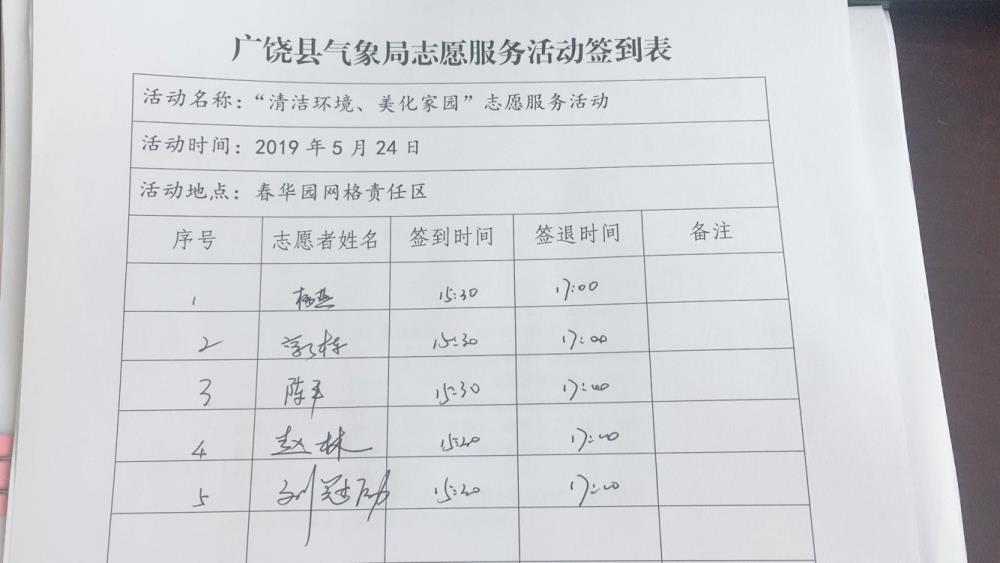 广饶县气象局志愿服务活动签到表
活动名称：“清洁环境、美化家园”志愿服务活动
活动时间：2019 年 5 月 24 日
活动地点：春华园网格责任区
序号 志愿者姓名 签到时间 签退时间 备注
1 15:30 17:00
2 15:30 17:00
3 陈平 15:30 17:00
4 赵林 15:30 17:00
5 刘冠励 15:30 17:00